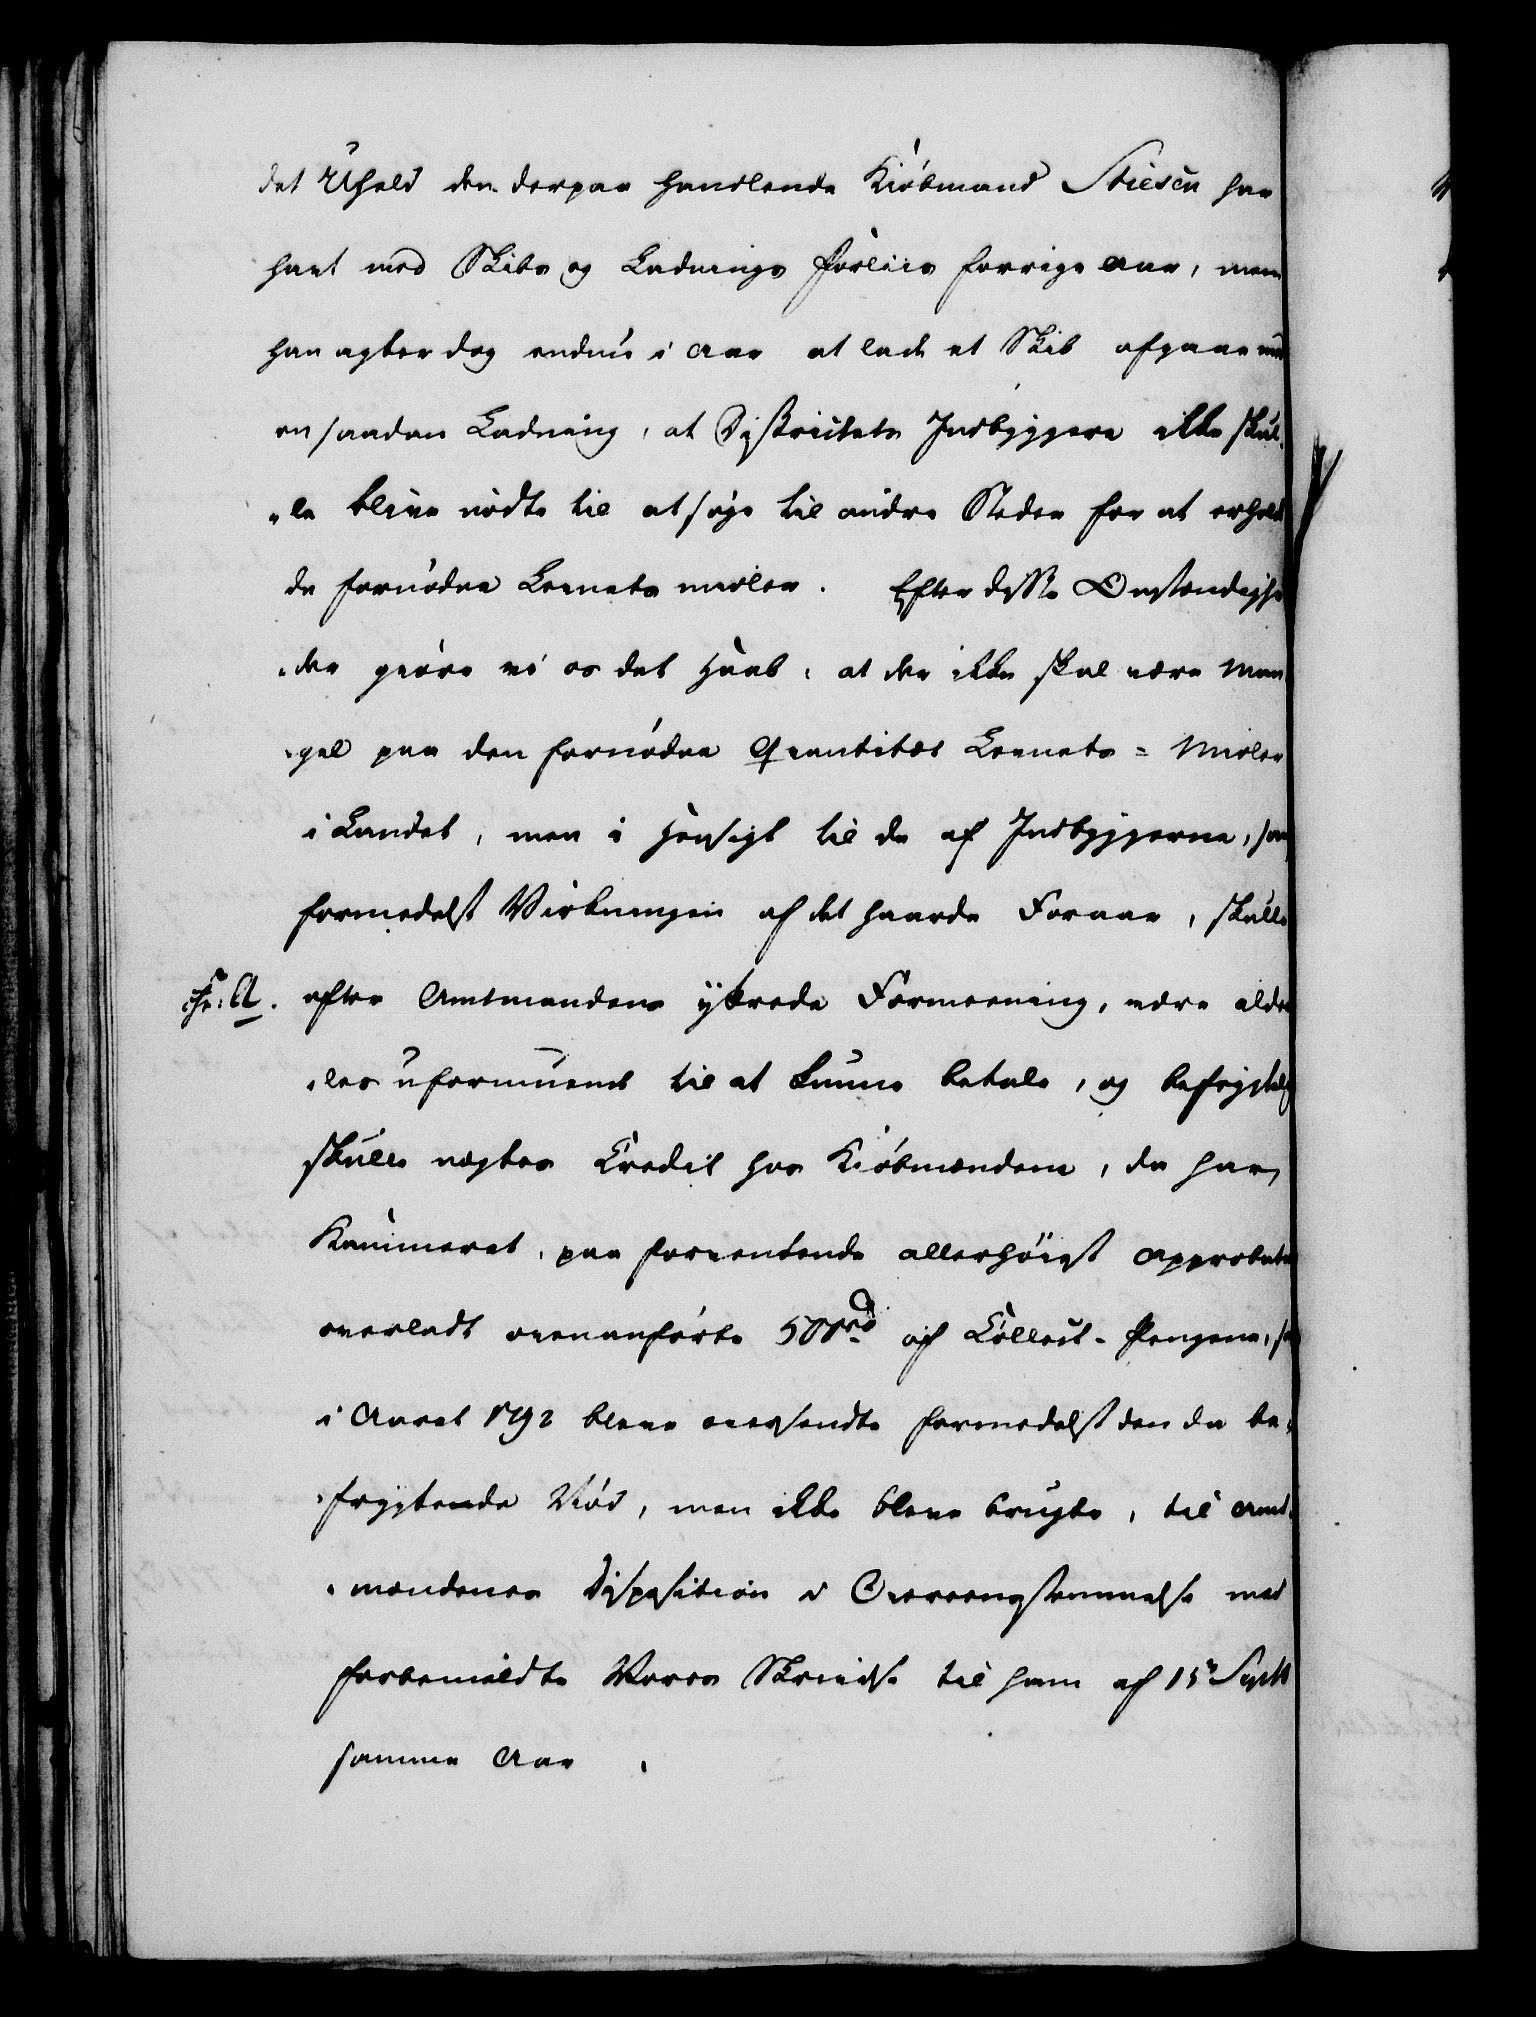 det Uheld den derpaa handlende Kiöbmand Stiesen har
havt med Skibs og Ladnings Forliis forrige Aar, men
han agter dog endnu i Aar at lade et Skib afgaae med
en saadan Ladning, at Districtets Indbyggere ikke skul-
„le blive nødte til at søge til andre Steder for at erholde
de fornødne Levnets midler. Efter disse Omstændighe
„der giøre vi os det Haab, at der ikke skal være Man
„gel paa den fornødne Qvantitet Levnets = Midler
i Landet, men i Hensigt til de af Indbyggerne, som
formedelst Virkningen af det haarde Foraar, skulle
Fr: A. efter Amtmandens yttrede Formeening, være alde
„les uformuende til at kunne betale, og befrygtes
skulle nægtes Credit hos Kiöbmændene, da har
Kammeret, paa forventende allerhöiest Approbation
overladt ovenanførte 500 rd af Collect-Pengene, som
i Aaret 1792 bleve oversendte formedelst den da be-
„frygtende Nød, men ikke bleve brugte, til Amt-
„mandens Disposition i Overeensstemmelse med
forbemeldte Vores Skrivelse til ham af 15de Septbr
samme Aar.